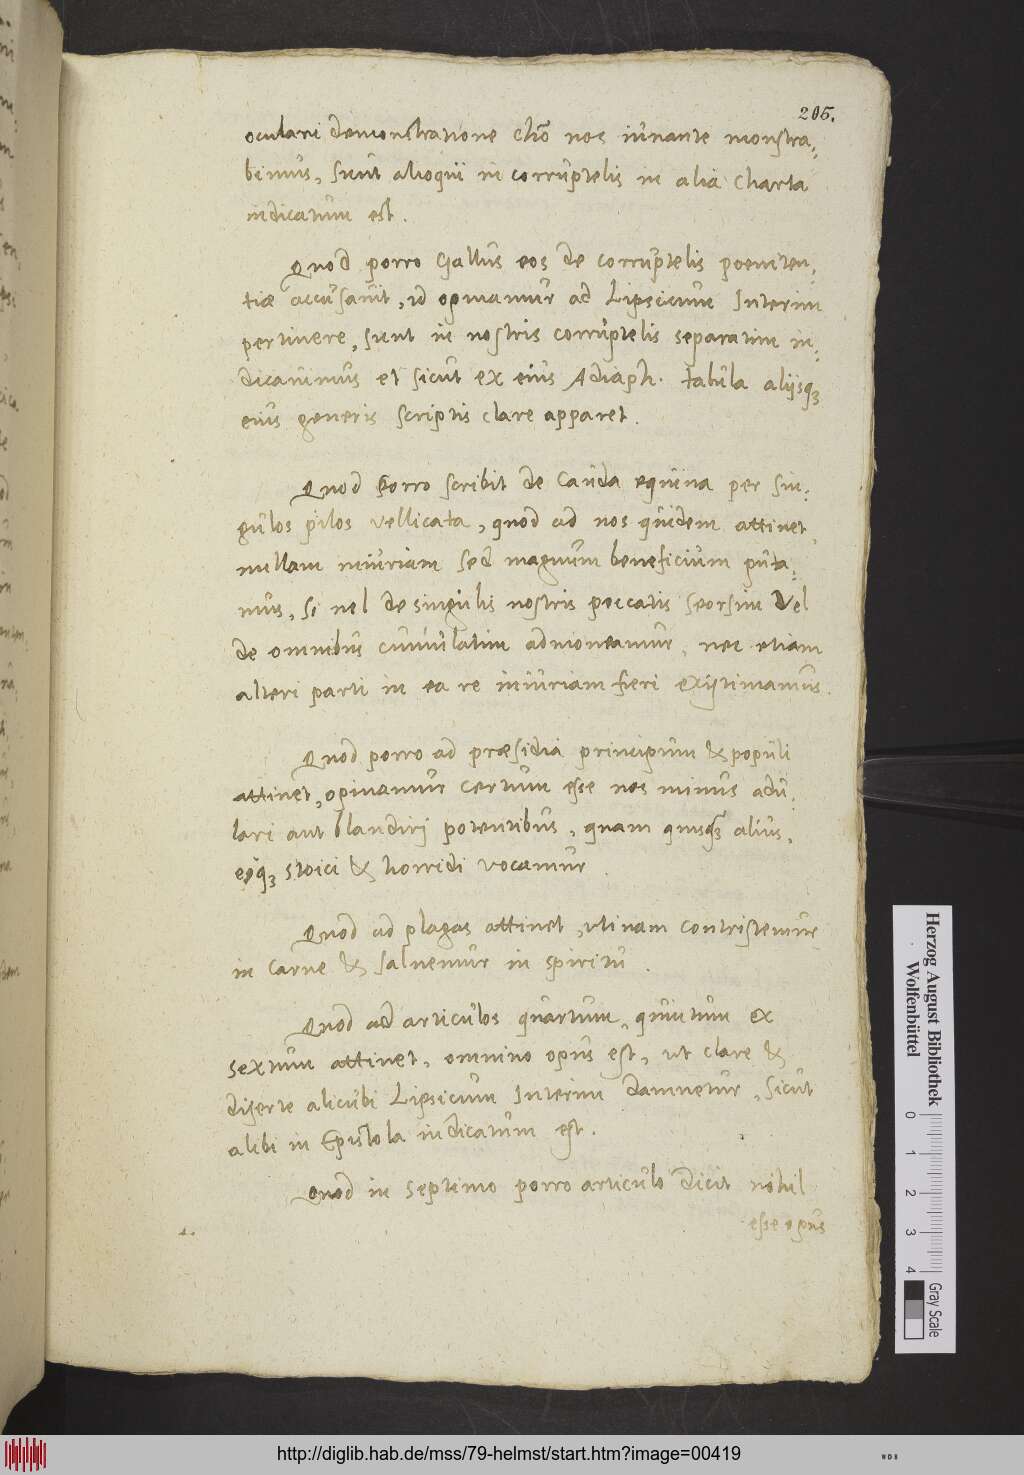 205.
oculari demonstratione Chro nos iuuante monstra-
bimus, sunt alioqui in corruptelis in alia charta
indicatum est.
Quod porro Gallus eos de corruptelis poeniten-
tiae accusauit, id opinamur ad Lipsicum Interim
pertinere, sunt in nostris corruptelis separatim in-
dicauimus et sicut ex eius Adiaph. tabula alijsqꝫ
eius generis scriptis clare apparet.
Quod porro scribit de cauda equina per sin-
gulos pilos vellicata, quod ad nos quidem attinet
nullam iniuriam sed magnum beneficium puta-
mus, si uel de singulis nostris peccatis seorsim Vel
de omnibus cumulatim admoneamur, nec etiam
alteri parti in ea re iniuriam fieri existimamus.
Quod porro ad praesidia principum & populi
attinet, opinamur certum esse nos minus adu-
lari aut blandirj potentibus, quam quisqꝫ alius,
eoqꝫ stoici & horridi vocamur.
Quod ad plagas attinet, utinam contristemur
in carne & saluemur in spiritu.
Quod ad articulos quartum, quintum ex
sextum attinet, omnino opus est, ut clare &
diserte alicubi Lipsicum Interim damnetur, sicut
alibi in Epistola indicatum est.
Quod in septimo porro articulo dicit nihil
esse opus
Herzog August Bibliothek
Wolfenbüttel
0 1 2 3 4
Gray Scale
http://diglib.hab.de/mss/79-helmst/start.htm?image=00419